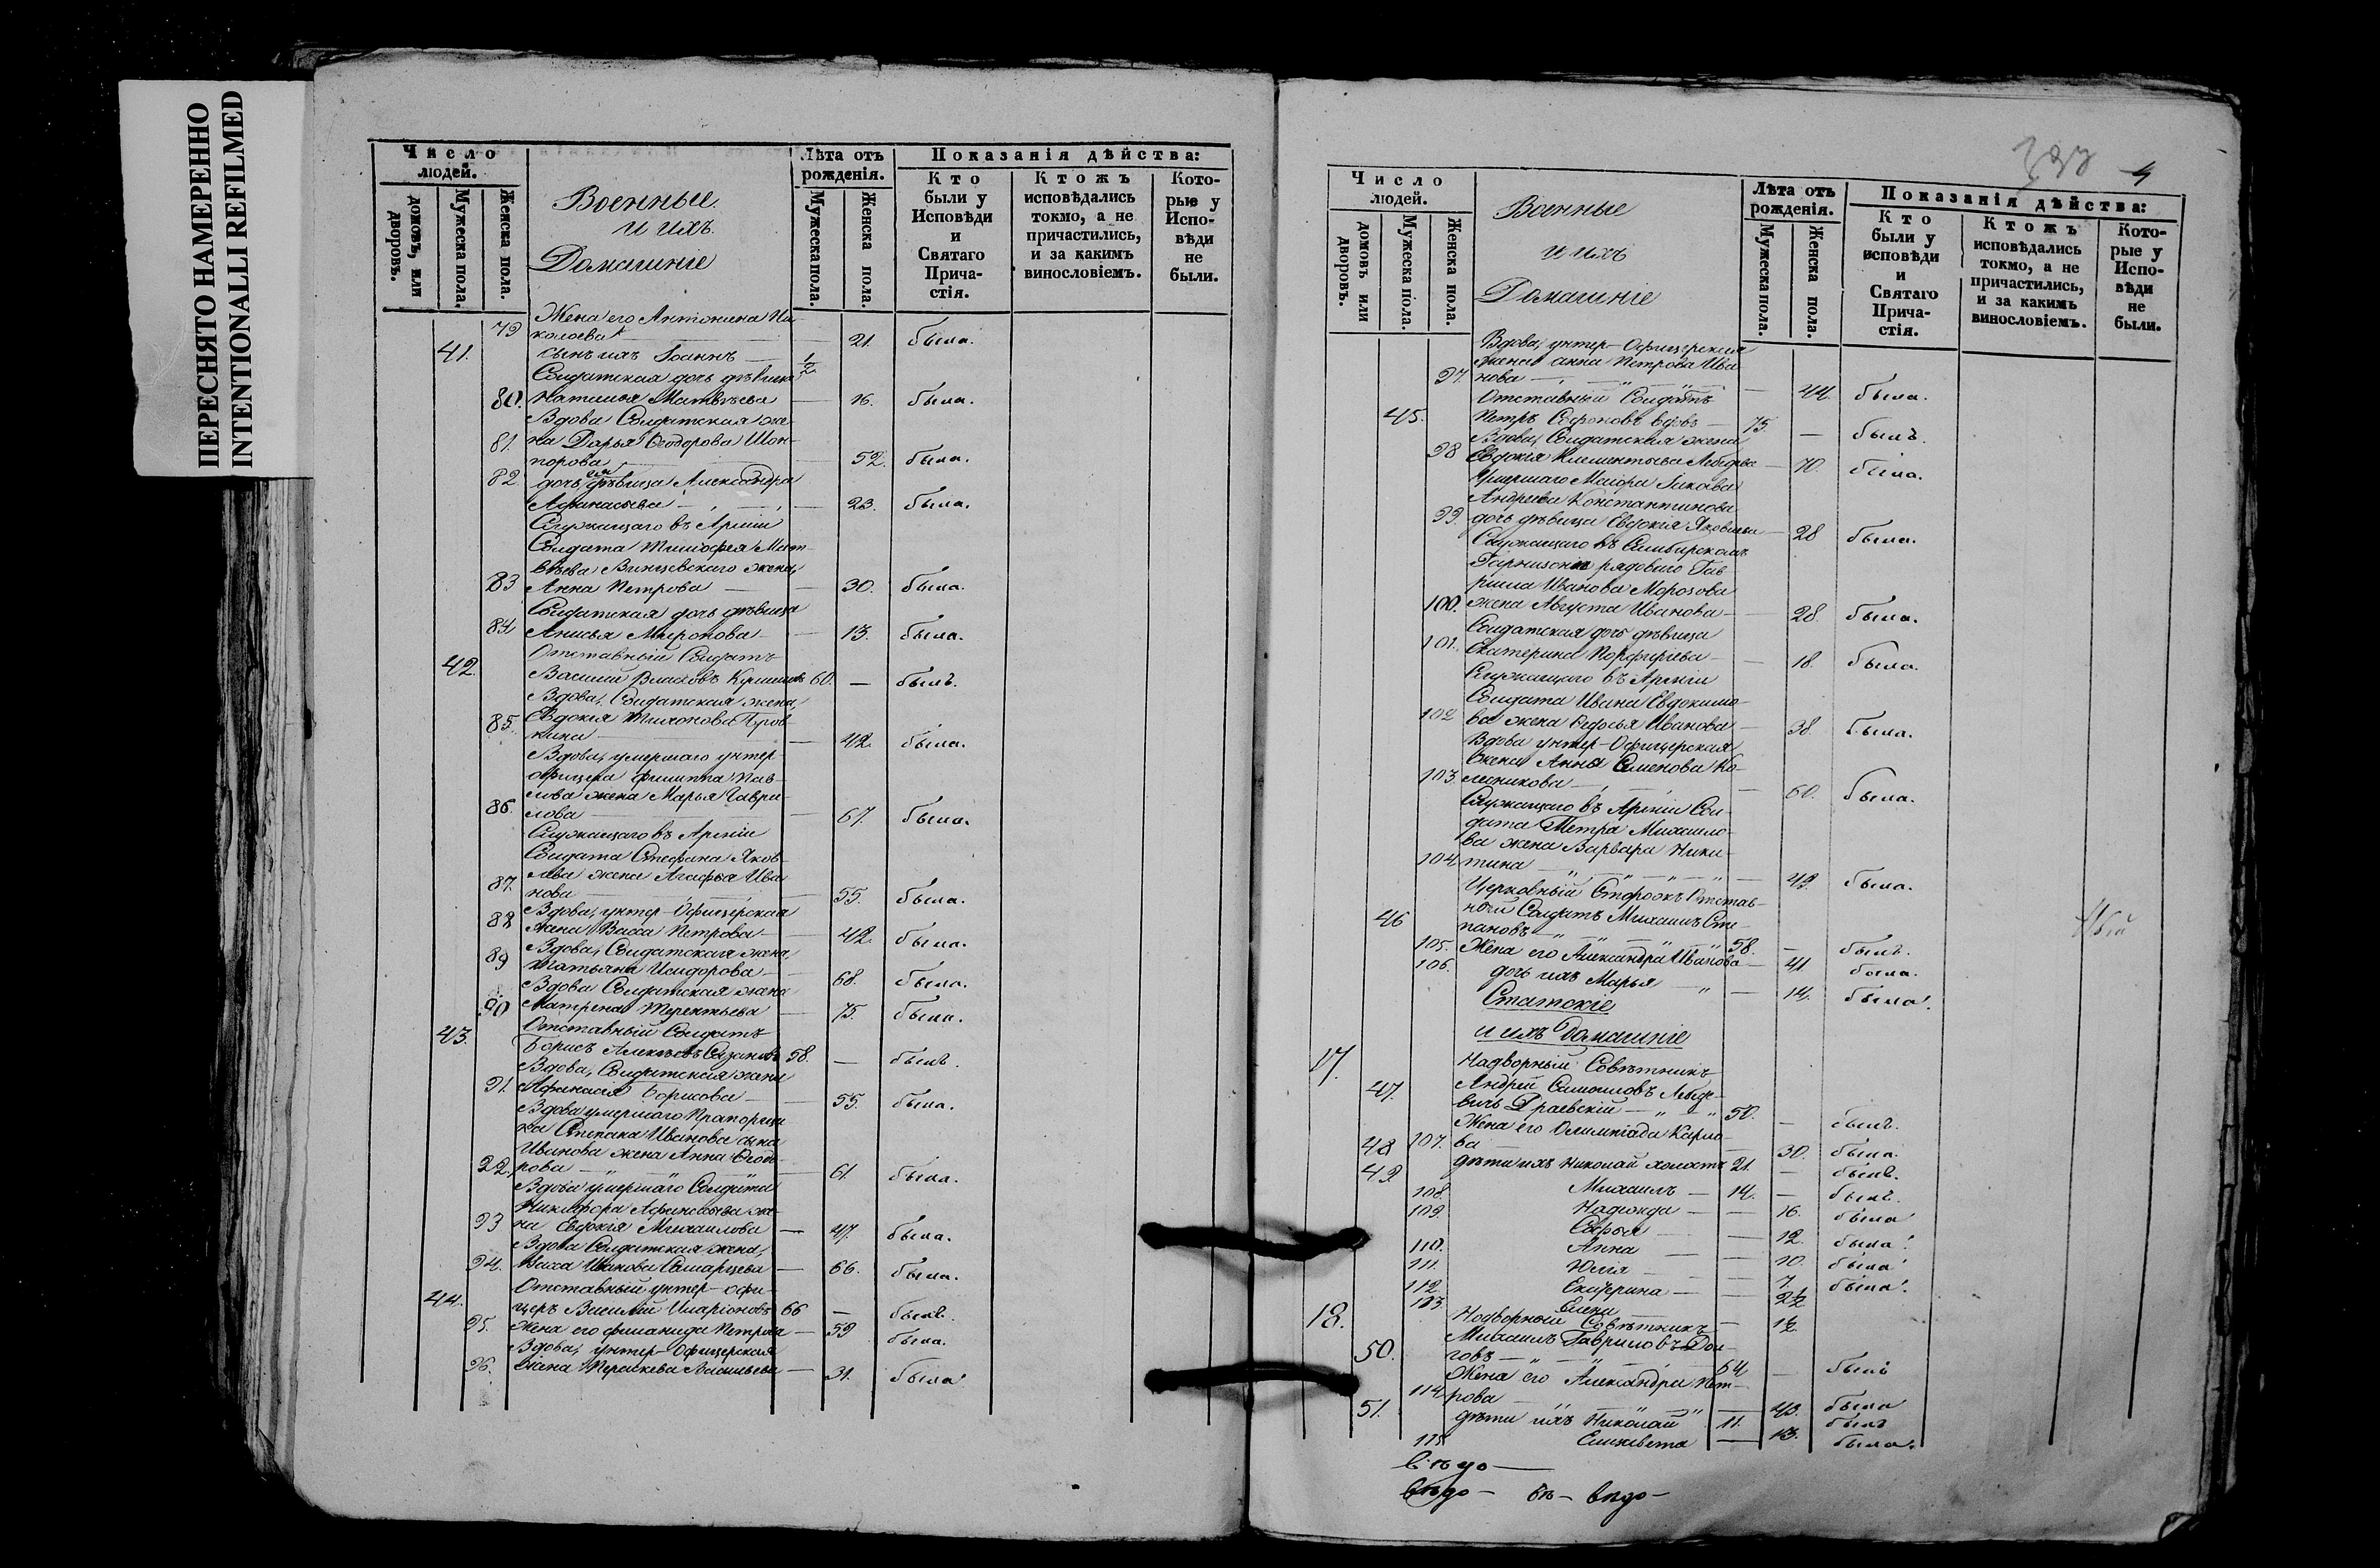 ПЕРЕСНЯТО НАМЕРЕННО
INTENTIONALLI REFILMED
Число людей.
домовъ, или дворовъ.
Мужеска пола.
Женска пола.
Военные
и ихъ
Домашніе
Лѣта отъ рожденія.
Мужеска пола.
Женска пола.
Показанія дѣйства:
Кто были у Исповѣди и Святаго Прича-стія.
Ктожъ исповѣдались токмо, а не причастились, и за какимъ винословіемъ.
Кото-рые у Испо-вѣди не были.
Жена его Антонина Ни-
79 колаева — 21. была.
41. сынъ ихъ Іоаннъ — 1/2
Солдатская дочь дѣвица
80. Наталья Матвѣева — 16. была.
Вдова Солдатская же-
81. на Дарья Ѳеодорова
52. была.
82. дочь ея дѣвица Александра
Афанасьева — 23. была.
Служащаго въ Арміи
Солдата Тимофея Мат-
вѣева жена
83 Анна Петрова — 30. была.
Солдатская дочь дѣвица
84 Анисья Миронова — 13. была.
Отставный Солдатъ
42. Василій Власовъ 60. — былъ.
Вдова, Солдатская жена,
85. Евдокія Тихонова
кина — 42. была.
Вдова, умершаго унтер-
офицера Филиппа Пав-
лова жена Марья Гаври-
86. лова — 67. была.
Служащаго въ Арміи
Солдата Стефана Яков-
лева жена Агафья Ива
87. нова — 55. была.
Вдова, унтер-Офицерская
88 жена Васса Петрова — 42. была.
Вдова, Солдатская жена,
89 Татьяна Исидорова — 68. была.
Вдова Солдатская жена
90 Матрена Терентьева — 75. была.
Отставный Солдатъ
43. Борисъ Алексѣевъ 58. — былъ.
Вдова, Солдатская жена
91. Афанасія Борисова — 55. была.
Вдова умершаго Прапорщи
ка Степана Иванова сына
Иванова жена Анна Ѳеодо-
92. рова — 61. была.
Вдова умершаго Солдата
Никифора Афанасьева же-
93 на Евдокія Михаилова — 47. была.
Вдова Солдатская жена,
94. Васса Иванова — 66. была.
Отставный унтер-офи-
44. церъ Василій Иларіоновъ 66 — былъ.
95. Жена его Филанида Петрова — 59 была.
Вдова, унтер-Офицерская
96. жена Параскева Васильева — 31. была
4
Число людей.
домовъ или дворовъ.
Мужеска пола.
Женска пола.
Военные
и ихъ
Домашніе
Лѣта отъ рожденія.
Мужеска пола.
Женска пола.
Показанія дѣйства:
Кто были у исповѣди и Святаго Прича-стія.
Ктожъ исповѣдались токмо, а не причастились, и за какимъ винословіемъ.
Кото-рые у Испо-вѣди не были.
Вдова, унтер-Офицерская
жена Анна Петрова Ива
97. нова — 44. была.
Отставный Солдатъ
45. Петръ Софоновъ вдовъ — 75. — былъ.
Вдова, Солдатская жена
98 Евдокія Климентьева — 70. была.
Умершаго Маіора Якова
Андреева Константинова
99. дочь дѣвица Евдокія Яковлева — 28 была.
Служащаго въ Симбирскомъ
Гарнизонѣ рядоваго Гав
риила Иванова Морозова
100. жена Августа Иванова — 28. была.
Солдатская дочь дѣвица
101. Екатерина Порфирьева — 18. была.
Служащаго въ Арміи
Солдата Ивана Евдокимо-
102 ва жена Ѳедосья Иванова — 38. была.
Вдова унтер-Офицерская
жена Анна Семенова Ко-
103. лесникова — 60. была.
Служащаго въ Арміи Сол-
дата Петра Михаило-
ва жена Варвара Ники-
104. тина — 43. была.
Церковный Сторожъ Отстав-
ной Солдатъ Михаилъ Сте-
46 пановъ — 58. — былъ.
105. Жена его Александра Иванова — 41 была.
106. дочь ихъ Марья — 14. была.
Статскіе
и ихъ Домашніе
17. Надворный Совѣтникъ
47. Андрей Самоиловъ
Драевскій — 50. — былъ.
Жена его Олимпіада Карло-
107. ва — 30. была.
48 дѣти ихъ Николай холостъ 21. — былъ.
49 Михаилъ — 14. — былъ.
108. Надежда — 16. была
109. Софья — 12. была.
110. Анна — 10. была
111. Юлія — 7. была.
112 Екатерина — 2 1/2
113. Елена — 1/2
18. Надворный Совѣтникъ
Михаилъ Гавриловъ Дол-
50. говъ — 64 — былъ
Жена его Александра Пет-
114. рова — 43. была
51. дѣти ихъ Николай 11. былъ
115 Елисавета — 13. была.